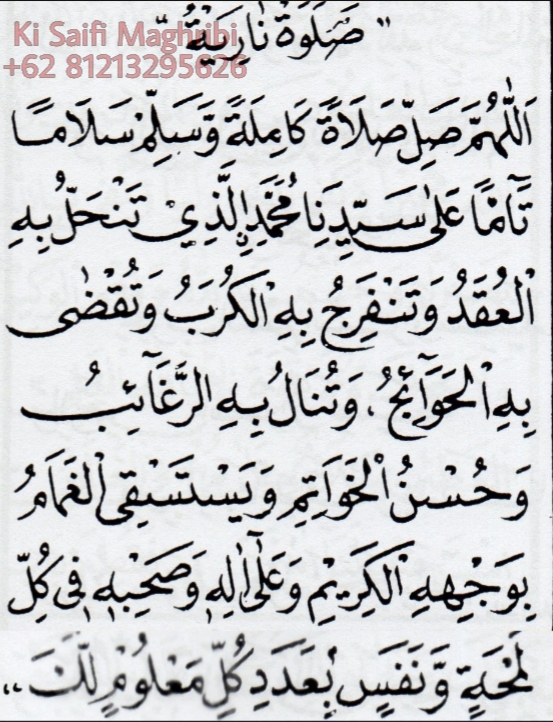 „ صَلَوةْ نَارِيَةْ „
Ki Saifi Maghribi
+62 81213295626
اَللّٰهُمَّ صَلِّ صَلَاةً كَامِلَةً وَّسَلِّمْ سَلَامًا
تَآمًّا عَلٰى سَيِّدِنَا مُحَمَّدِ الَّذِيْ تَنْحَلُّ بِهِ
الْعُقَدُ وَتَنْفَرِجُ بِهِ الْكُرَبُ وَتُقْضٰى
بِهِ الْحَوَآئِجُ ، وَتُنَالُ بِهِ الرَّغَآئِبُ
وَحُسْنُ الْخَوَاتِمِ وَيَسْتَسْقِى الْغَمَامُ
بِوَجْهِهِ الْكَرِيْمِ وَعَلٰٓى اٰلِهٖ وَصَحْبِهٖ فِى كُلِّ
لَمْحَةٍ وَّنَفَسٍ بِعَدَدِ كُلِّ مَعْلُوْمٍ لَّكَ „